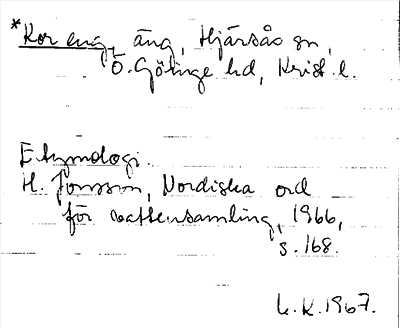 *Kor eng, äng, Hjärsås sn,
Ö. Göinge hd, Krist. l.
Etymologi.
H. Jonsson, Nordiska ord
för vattensamling, 1966,
s. 168.
L.K. 1967.